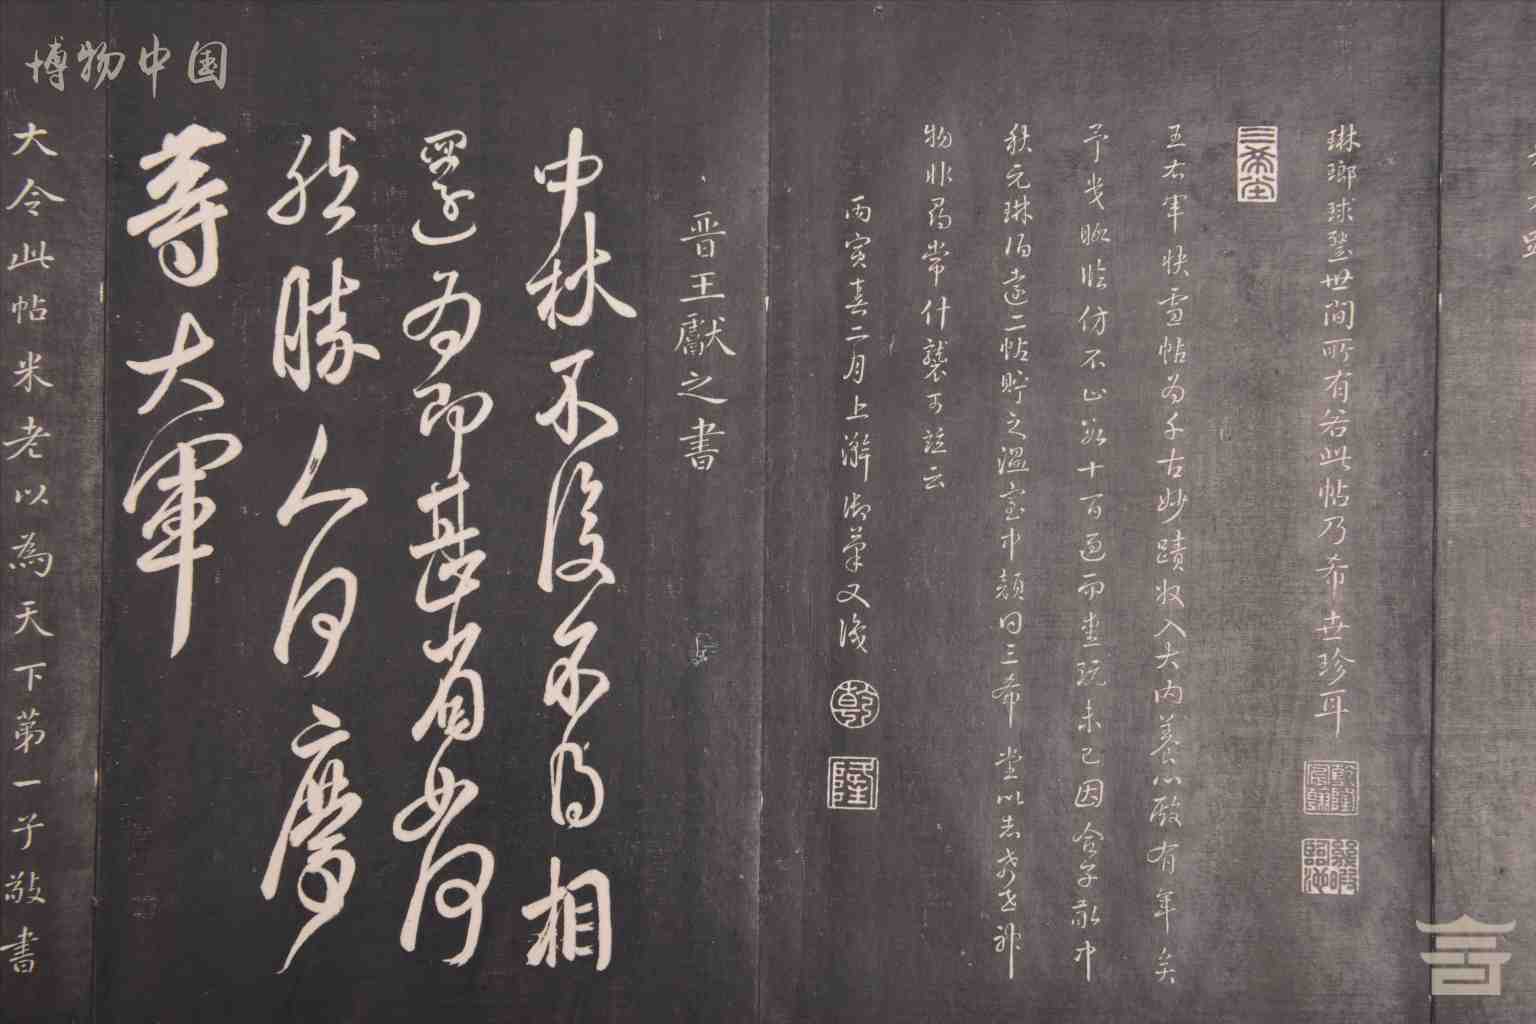 博物中国
琳瑯球璧世間所有若此帖乃希世珍耳
乾隆宸翰
幾暇臨池
三希堂
王右軍快雪帖為千古妙蹟收入大內養心殿有年矣
予幾暇臨仿不止數十百過而愛玩未已因合子敬中
秋元琳伯遠二帖貯之溫室中顏曰三希堂以志希世神
物非尋常什襲可並云
丙寅春二月上澣御筆又識
乾
隆
晉王獻之書
中秋不復不得相
還為即甚省如何
然勝人何慶
等大軍
大令此帖米老以為天下第一子敬書